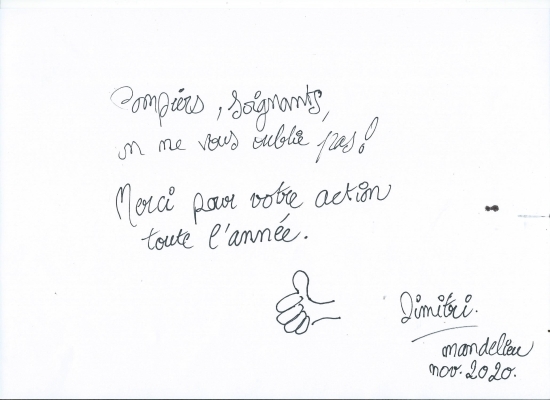 Pompiers, soignants,
on ne vous oublie pas!
Merci pour votre action
toute l'année.
Dimitri.
mandelieu
nov. 2020.